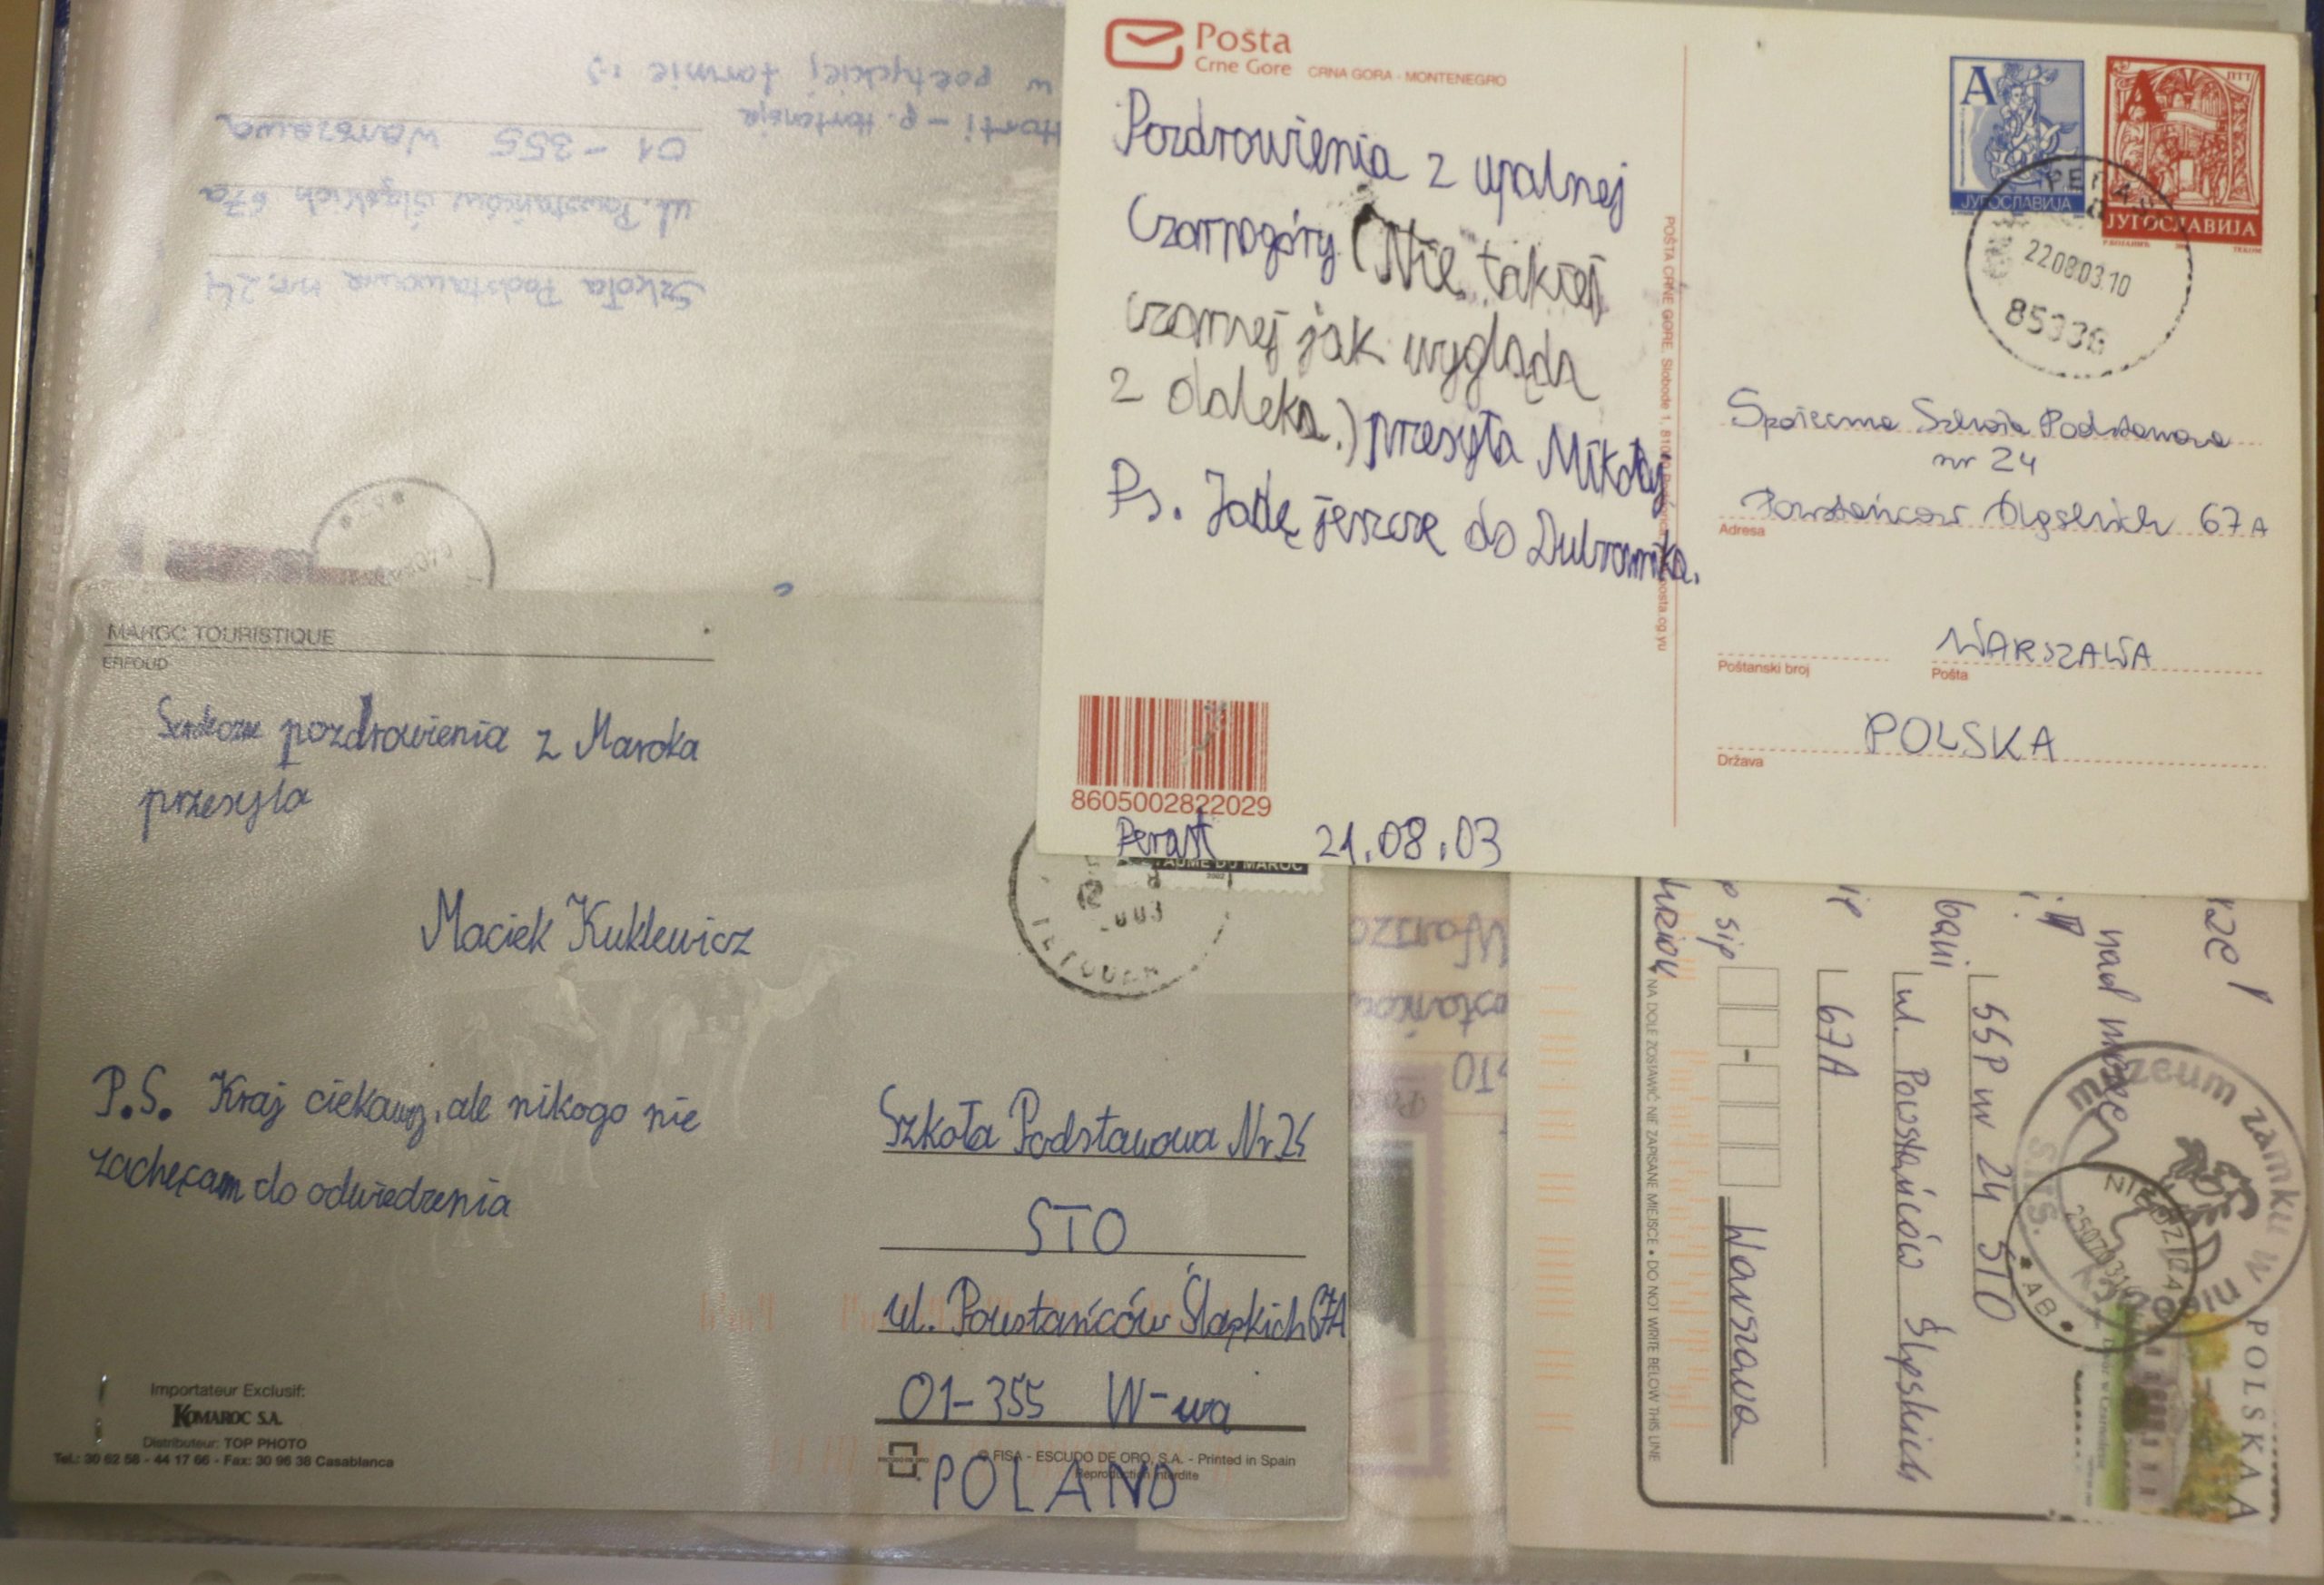 Posta
Crne Gore CRNA GORA - MONTENEGRO
Pozdrowienia z upalnej
Czarnogóry (Nie takiej
czarnej jak wygląda
z daleka.) przesyła Mikołaj
Ps. Jadę jeszcze do Dubrownika.
8605002822029
Perast 21.08.03
POŠTA CRNE GORE, Slobode 1, 81000
A
ЈУГОСЛАВИЈА
A
ПТТ
ЈУГОСЛАВИЈА
22.08.03.10
85336
Społeczna Szkoła Podstawowa
nr 24
Powstańców Śląskich 67A
Adresa
WARSZAWA
Poštanski broj
Pošta
POLSKA
Država
w poetyckiej formie :)
Horti - p. Hortensja
01-355 Warszawa
ul. Powstańców Śląskich 67a
Szkoła Podstawowa nr 24
MAROC TOURISTIQUE
ERFOUD
Serdeczne pozdrowienia z Maroka
przesyła
Maciek Kuklewicz
P.S. Kraj ciekawy, ale nikogo nie
zachęcam do odwiedzenia
DU MAROC
2002
Szkoła Podstawowa Nr 24
STO
ul. Powstańców Śląskich 67A
01-355 W-wa
POLAND
Importateur Exclusif:
KOMAROC S.A.
Distributeur: TOP PHOTO
Tel.: 30 62 58 - 44 17 66 - Fax: 30 96 38 Casablanca
© FISA - ESCUDO DE ORO, S.A. - Printed in Spain
Reproduction interdite
STO
nad morze
SSP nr 24 STO
ul. Powstańców Śląskich
67A
Warszawa
NA DOLE ZOSTAWIĆ NIE ZAPISANE MIEJSCE • DO NOT WRITE BELOW THIS LINE
muzeum zamku w niedzicy
S.H.S.
NIEDZICA
AB
POLSKA